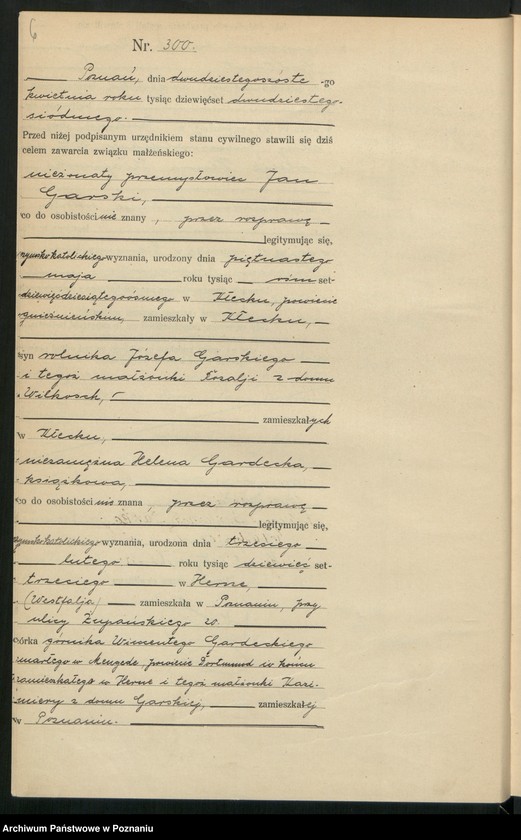 6
Nr. 300.
Poznań, dnia dwudziestegoszóste-go
kwietnia roku tysiąc dziewięćset dwudziesteg-
siódmego.
Przed niżej podpisanym urzędnikiem stanu cywilnego stawili się dziś
celem zawarcia związku małżeńskiego:
nieżonaty przemysłowiec Jan
Garski,
co do osobistości nie znany, przez rozprawę
legitymując się,
rzymskokatolickiego wyznania, urodzony dnia piętnastego
maja roku tysiąc ósmset-
dziewięćdziesiątegoósmego w Kłecku, powiecie
gnieźnieńskim, zamieszkały w Kłecku,
syn rolnika Józefa Garskiego
i tegoż małżonki Rozalji z domu
Wilkosch,
zamieszkałych
w Kłecku,
niezamężna Helena Gardecka,
książkowa,
co do osobistości nie znana, przez rozprawę
legitymując się,
rzymskokatolickiego wyznania, urodzona dnia trzeciego
lutego roku tysiąc dziewięć set-
trzeciego w Herne,
(Westfalja) zamieszkała w Poznaniu, przy
ulicy Żupańskiego 20.
córka górnika Wincentego Gardeckiego
zmarłego w Mengede, powiecie Dortmund
zamieszkałego w Herne i tegoż małżonki Kazi-
miery z domu Garskiej, zamieszkałej
w Poznaniu.
Archiwum Państwowe w Poznaniu
szukajwarchiwach.gov.pl